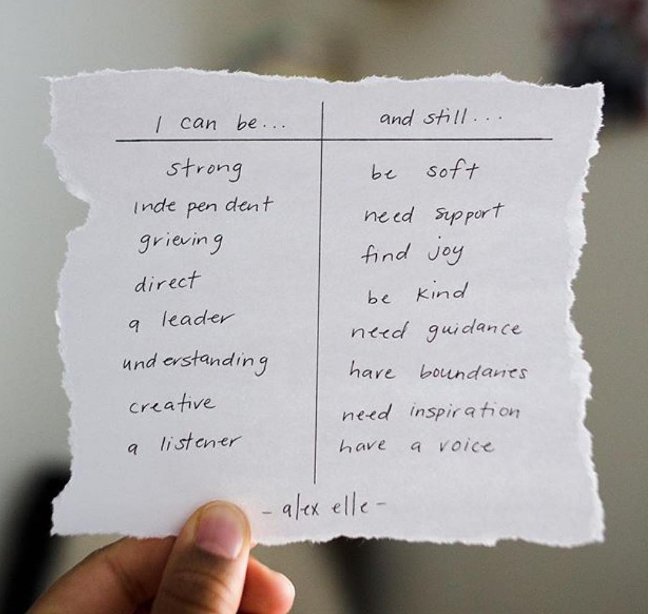 I can be... and still...
strong be soft
independent need support
grieving find joy
direct be kind
a leader need guidance
understanding have boundaries
creative need inspiration
a listener have a voice
- alex elle -